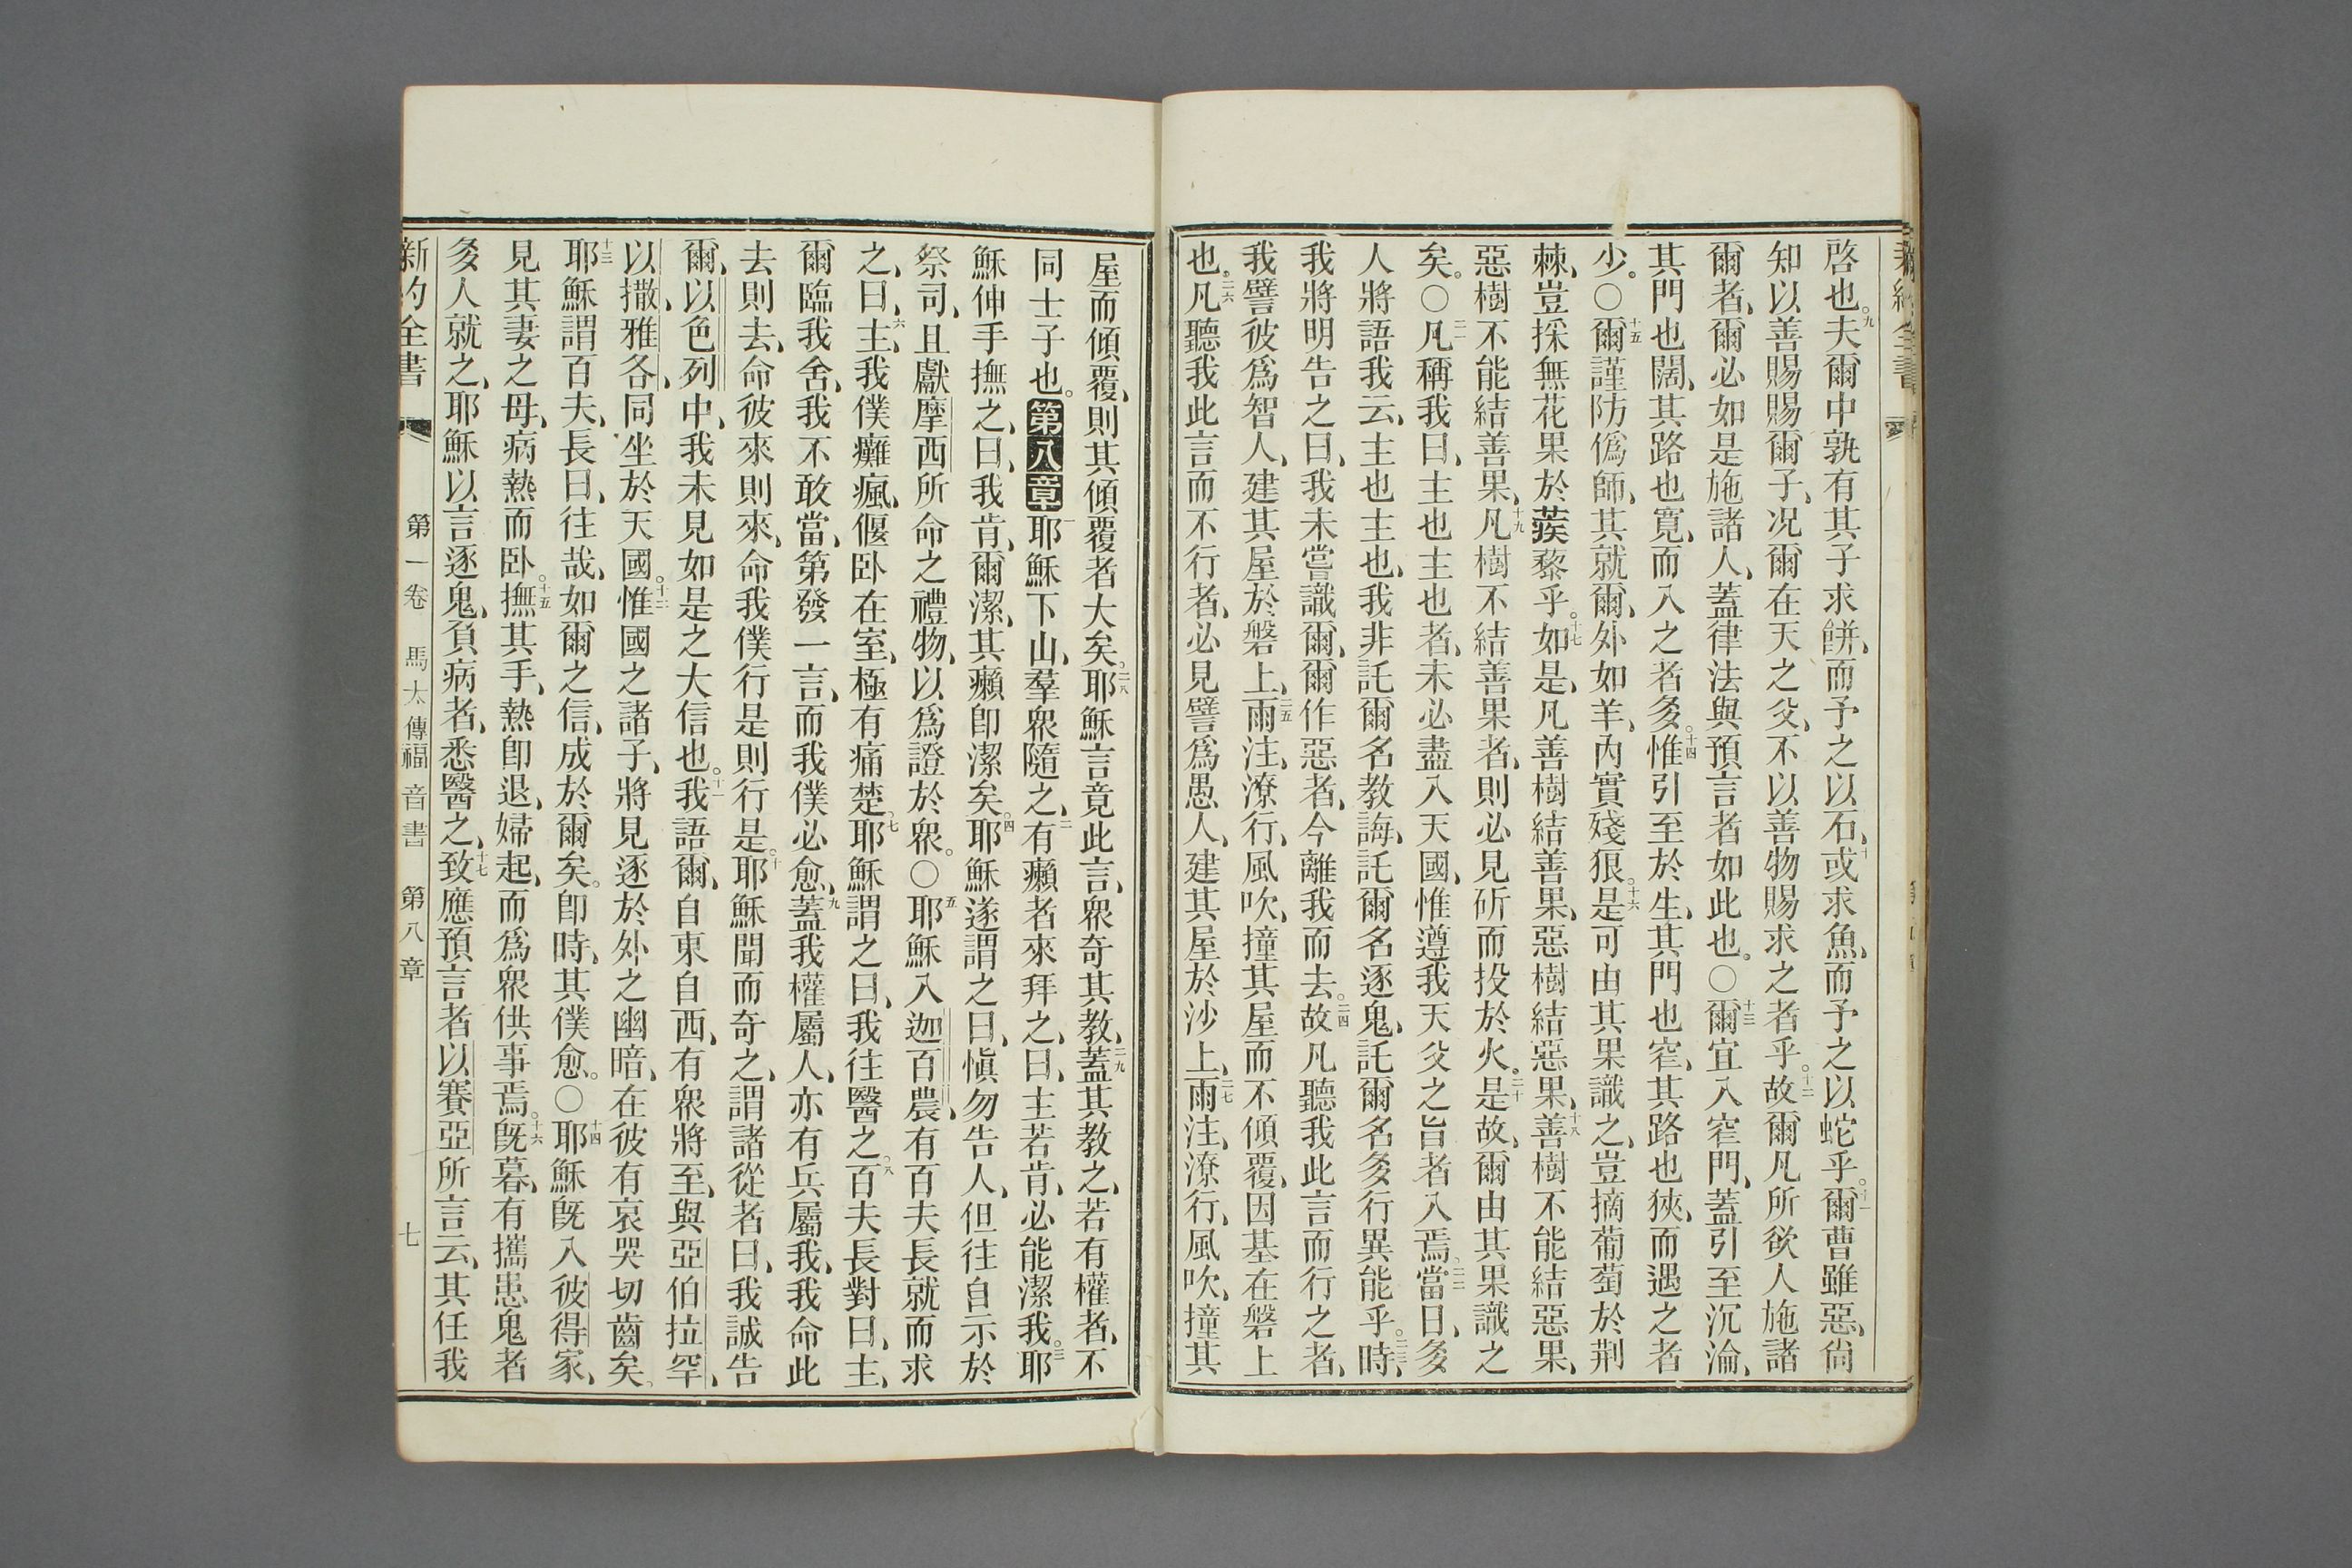 啓也。九夫爾中孰有其子求餅、而予之以石、十或求魚、而予之以蛇乎。十一爾曹雖惡、尙
知以善賜賜爾子、况爾在天之父、不以善物賜求之者乎。十二故爾凡所欲人施諸
爾者、爾必如是施諸人、蓋律法與預言者如此也。○十三爾宜入窄門、蓋引至沉淪、
其門也闊、其路也寬、而入之者多。十四惟引至於生、其門也窄、其路也狹、而遇之者
少。○十五爾謹防僞師、其就爾、外如羊、內實殘狠。十六是可由其果識之、豈摘葡萄於荆
棘、豈採無花果於蒺藜乎。十七如是、凡善樹結善果、惡樹結惡果、十八善樹不能結惡果、
惡樹不能結善果、十九凡樹不結善果者、則必見斫而投於火。二十是故、爾由其果識之
矣。○二一凡稱我曰、主也主也者、未必盡入天國、惟遵我天父之旨者入焉、二二當日、多
人將語我云、主也主也、我非託爾名教誨、託爾名逐鬼、託爾名多行異能乎。二三時、
我將明告之曰、我未嘗識爾、爾作惡者、今離我而去。二四故凡聽我此言而行之者、
我譬彼爲智人、建其屋於磐上、二五雨注、潦行、風吹、撞其屋而不傾覆、因基在磐上
也。二六凡聽我此言而不行者、必見譬爲愚人、建其屋於沙上、二七雨注、潦行、風吹、撞其
屋而傾覆、則其傾覆者大矣。二八耶穌言竟此言、衆奇其教、二九蓋其教之、若有權者、不
同士子也。第八章一耶穌下山、羣衆隨之、二有癩者來拜之、曰、主若肯、必能潔我。三耶
穌伸手撫之、曰、我肯、爾潔、其癩卽潔矣。四耶穌遂謂之曰、愼勿告人、但往自示於
祭司、且獻摩西所命之禮物、以爲證於衆。○五耶穌入迦百農、有百夫長就而求
之、曰、六主、我僕癱瘋、偃卧在室、極有痛楚、七耶穌謂之曰、我往醫之、八百夫長對曰、主、
爾臨我舍、我不敢當、第發一言、而我僕必愈、九蓋我權屬人、亦有兵屬我、我命此
去則去、命彼來則來、命我僕行是則行是。十耶穌聞而奇之、謂諸從者曰、我誠告
爾、以色列中、我未見如是之大信也。十一我語爾、自東自西、有衆將至、與亞伯拉罕、
以撒、雅各、同坐於天國。十二惟國之諸子、將見逐於外之幽暗、在彼有哀哭切齒矣、
十三耶穌謂百夫長曰、往哉、如爾之信、成於爾矣。卽時、其僕愈。○十四耶穌旣入彼得家、
見其妻之母、病熱而卧。十五撫其手、熱卽退、婦起、而爲衆供事焉。十六旣暮、有攜患鬼者
多人就之、耶穌以言逐鬼、負病者、悉醫之、十七致應預言者以賽亞所言云、其任我
新約全書 第一卷 馬太傳福音書 第八章 七